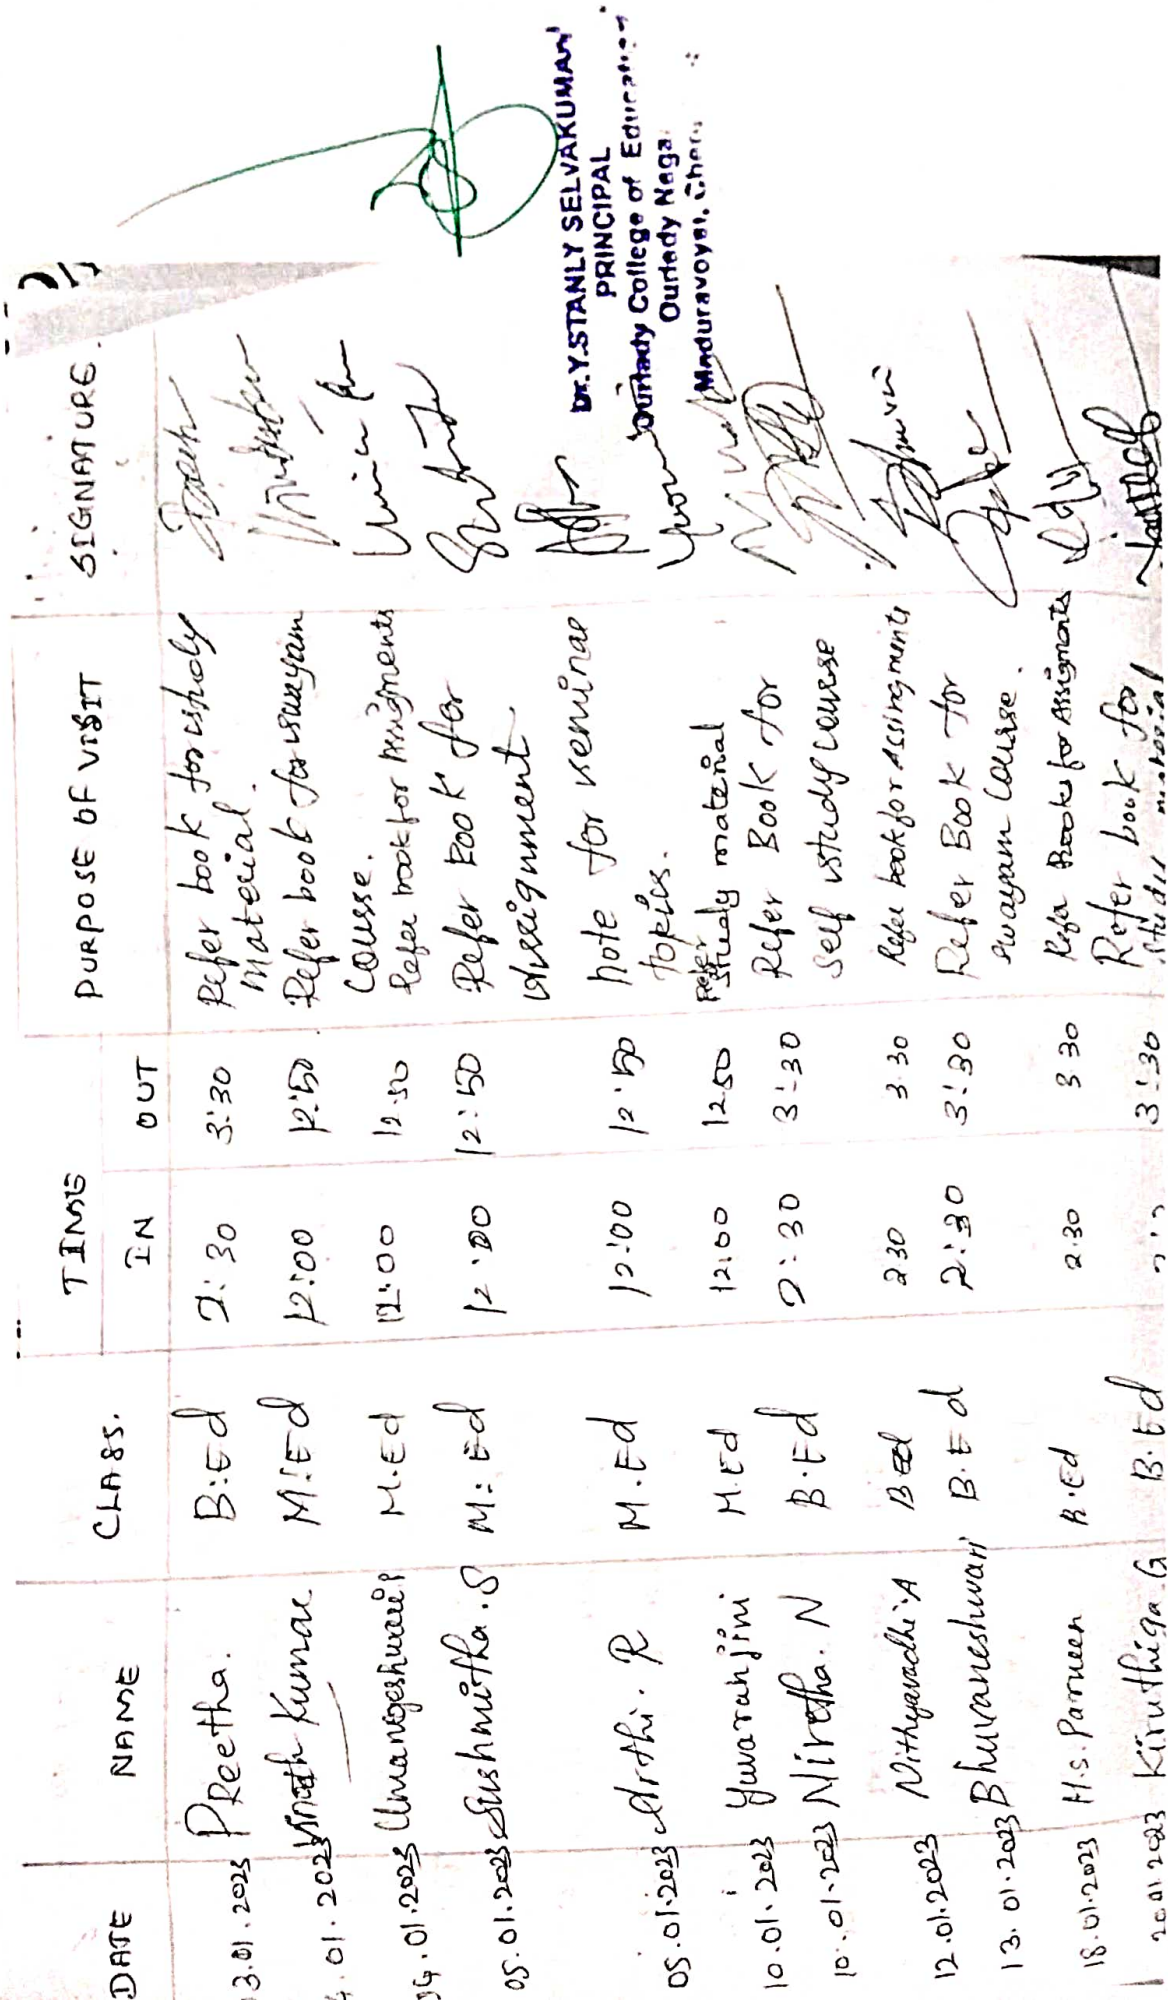 DATE NAME CLASS. TIME PURPOSE OF VISIT SIGNATURE
IN OUT
3.01.2023 PReetha. B.Ed 2:30 3:30 Refer book for study
Material.
4.01.2023 Vinoth Kumar M.Ed 12:00 12:50 Refer book for swayam
Course.
04.01.2023 Umamageshwari M.Ed 12:00 12.50 Refer book for Assignments
05.01.2023 Sushmitha.S M.Ed 12:00 12:50 Refer Book for
Assignment.
05.01.2023 Arthi. R M.Ed 12:00 12:50 note for seminar
topics.
10.01.2023 Yuvaranjini M.Ed 12:00 12.50 Refer
study material
10.01.2023 Nirotha. N B.Ed 2:30 3:30 Refer Book for
self study course
12.01.2023 Nithyavadhi.A B.ed 2.30 3.30 Refer book for Assingments
13.01.2023 Bhuvaneshwari B.Ed 2:30 3:30 Refer Book for
swayam Course.
18.01.2023 H.S. Parveen B.Ed 2.30 3.30 Refer Books for Assigments
20.01.2023 Kiruthiga.G B.Ed 3:30 Refer book for
Dr.Y.STANLY SELVAKUMAR
PRINCIPAL
Ourlady College of Education
Ourlady Naga
Maduravoyal, Chen